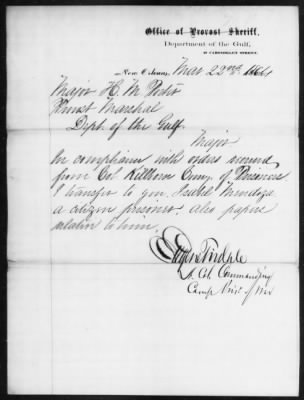 Office of Provost Sheriff,
Department of the Gulf,
New Orleans, Mar 22nd 1864
Major H. M. Porter
Provost Marshal
Dept. of the Gulf.
Major
In compliance with orders received
from Col Killborn Comg. of Prisoners
I transfer to you, Isabel Mendoza
a citizen prisoner. also papers
relative to him.
Lt. Col. Commanding